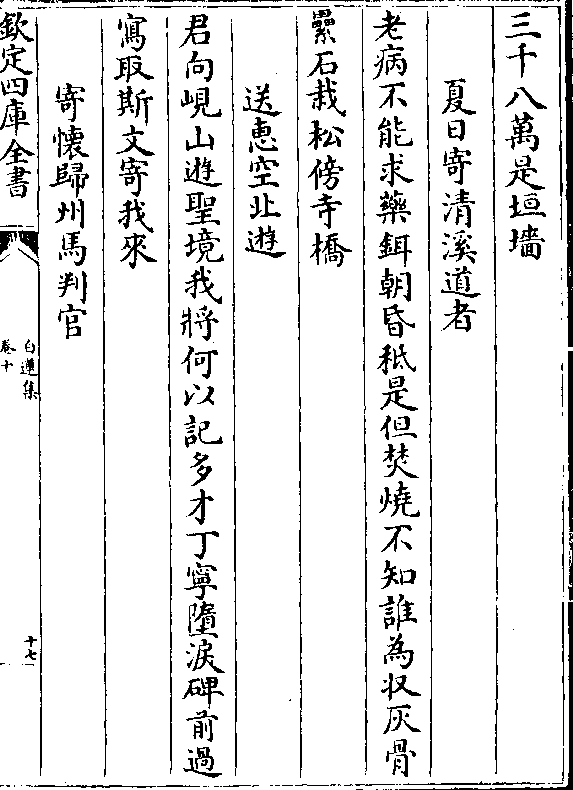 三千八萬是垣墻
夏日寄清溪道者
老病不能求藥餌朝昏秪是但焚燒不知誰為収灰骨
壘石栽松傍寺橋
送惠空北遊
君向峴山遊聖境我將何以記多才丁寧墮淚碑前過
寫取斯文寄我來
寄懐歸州馬判官
欽定四庫全書
白蓮集
卷十
十七